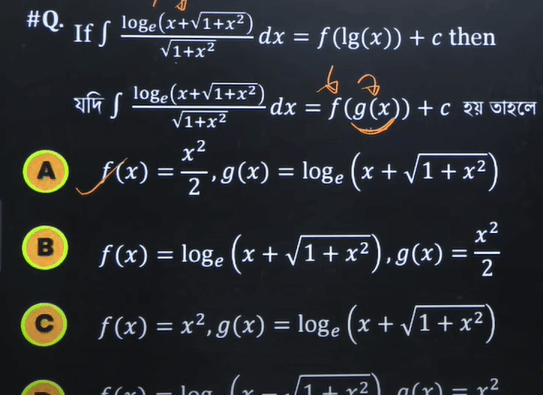 #Q. If ∫ logₑ(x+√1+x²)/√1+x² dx = f(lg(x)) + c then
যদি ∫ logₑ(x+√1+x²)/√1+x² dx = f(g(x)) + c হয় তাহলে
A f(x) = x²/2, g(x) = logₑ (x + √1 + x²)
B f(x) = logₑ (x + √1 + x²), g(x) = x²/2
C f(x) = x², g(x) = logₑ (x + √1 + x²)